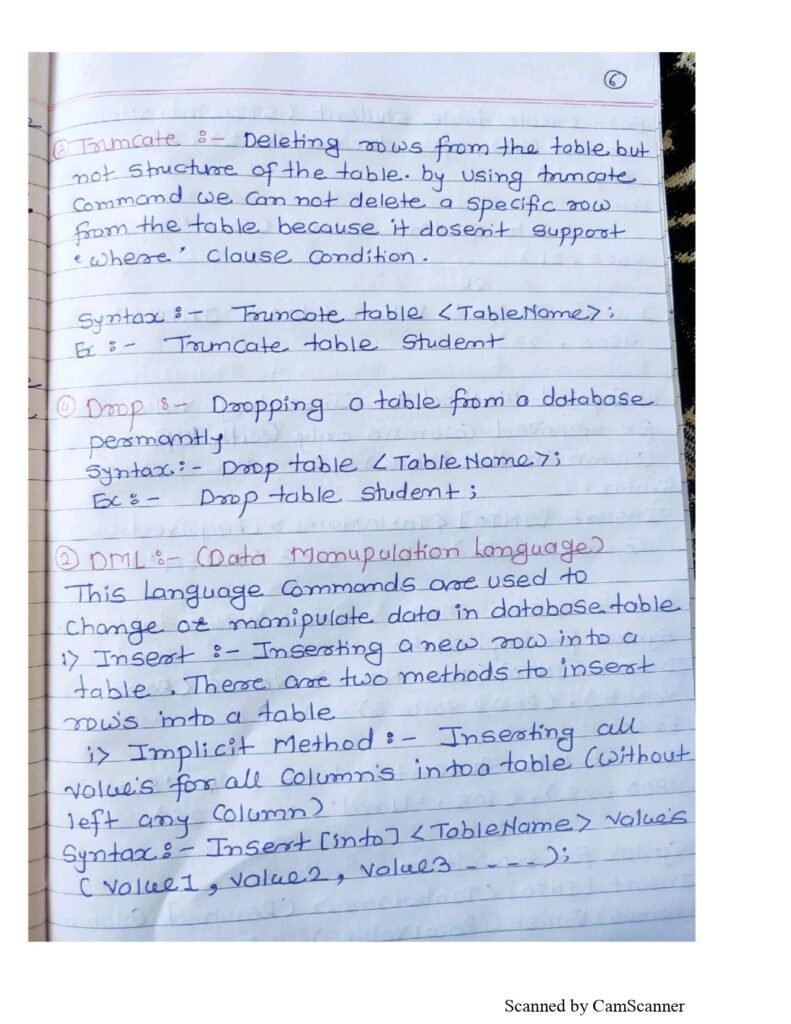 6
③ Truncate :- Deleting rows from the table but
not structure of the table. by using truncate
Command we can not delete a specific row
from the table because it dosen't support
'where' Clause Condition.
Syntax :- Truncate table <TableName>;
Ex :- Truncate table Student
④ Drop :- Dropping a table from a database
permantly
Syntax :- Drop table <TableName>;
Ex :- Drop table Student ;
② DML :- (Data Manupulation Language)
This Language Commands are used to
Change or manipulate data in database table
1> Insert :- Inserting a new row into a
table . There are two methods to insert
row's into a table
i> Implicit Method :- Inserting all
value's for all Column's into a table (without
left any Column)
Syntax :- Insert [into] <TableName> value's
(value1 , value2 , value3 ----);
Scanned by CamScanner